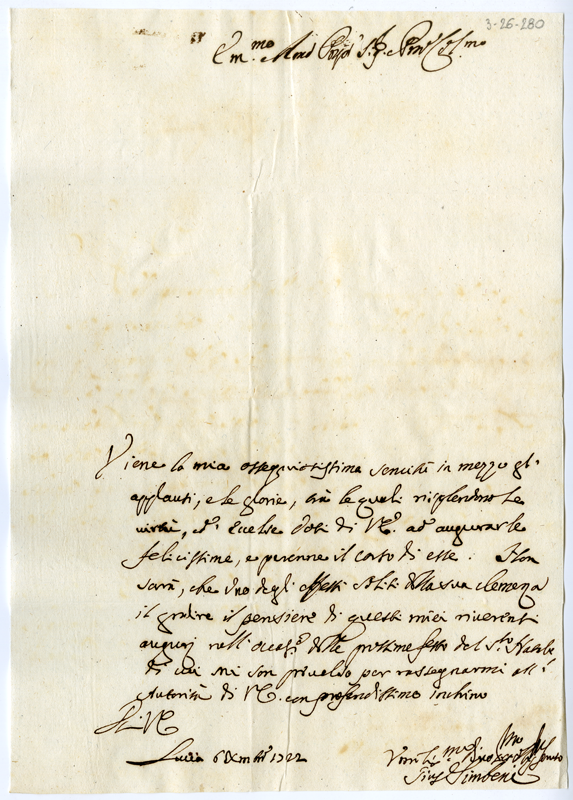 3-26-280
Em.mo
Viene la mia ossequiosissima servitù in mezzo gl'
applausi, e le glorie, trà le quali risplendono le
virtù, ed Eccelse doti di V.E. ad augurarle
felicissime, e perenne il corso di esse. Non
sarà, che uno degli effetti soliti della sua clemenza
il gradire il pensiere di questi miei riverenti
augurj nell'occas.e delle prossime feste del S.to Natale
di cui mi son prevalso per rassegnarmi all'
Autorità di V.E. con profondissimo inchino
Di V.E.
Lucca 6 Xmbre 1722